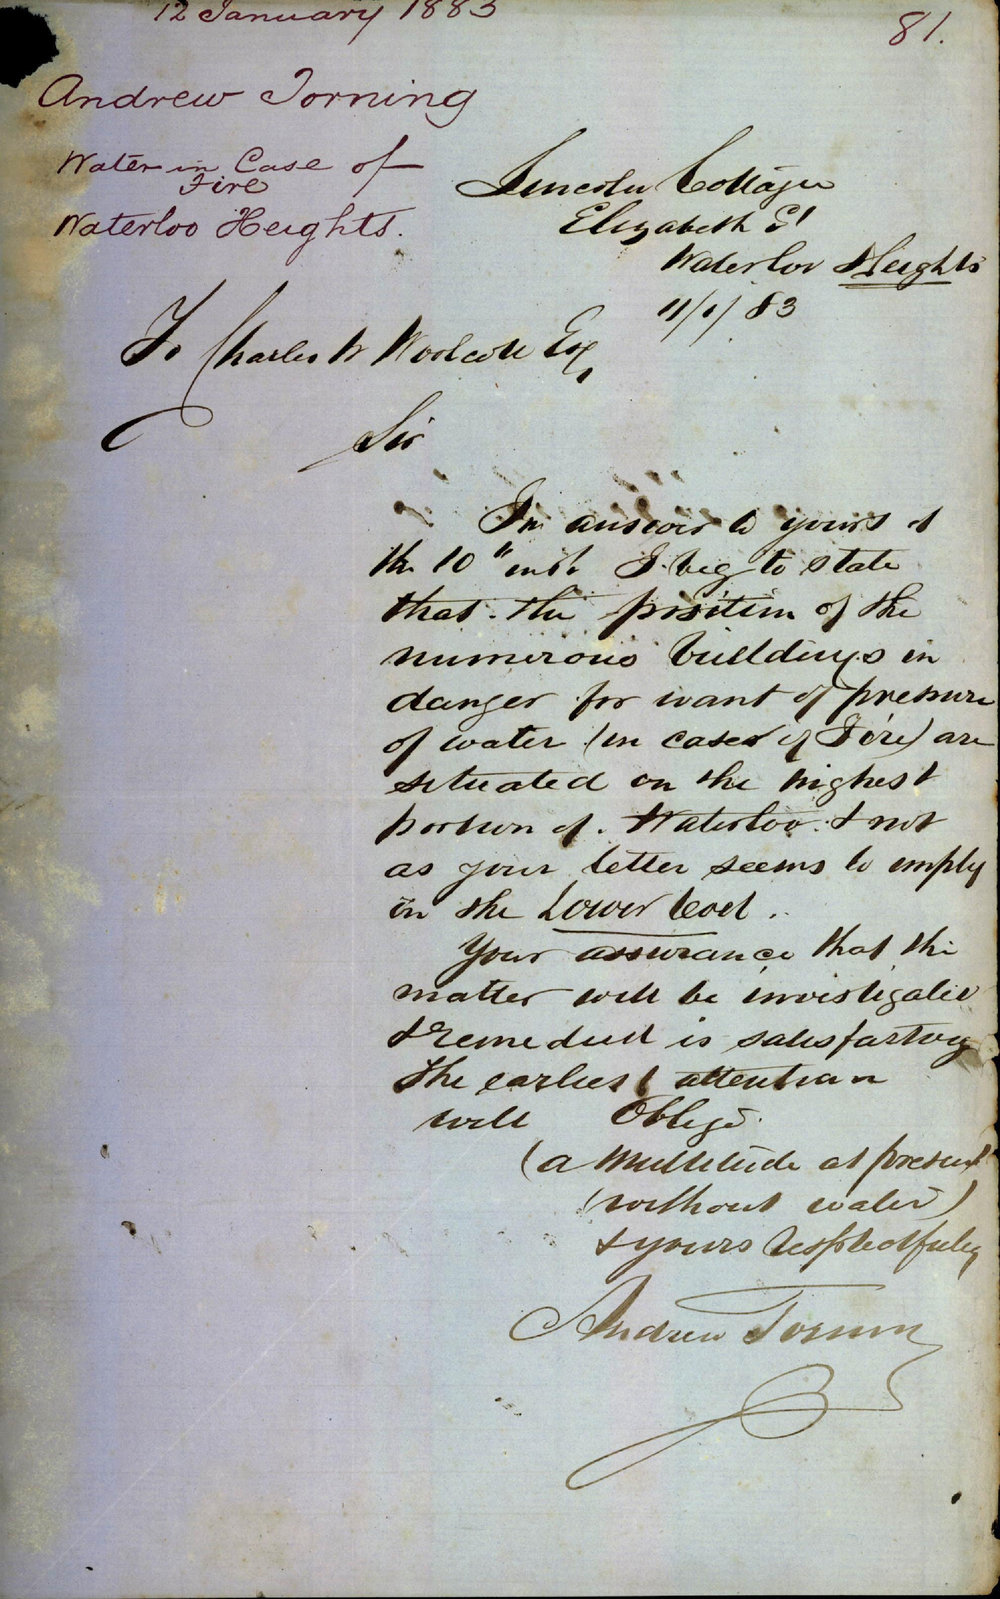 12 January 1883
81.
Andrew Torning
Water in Case of
Fire
Waterloo Heights.
Lincoln Cottage
Elizabeth St
Waterloo Heights
11/1/83
To Charles W Woolcott Esq,
Sir
In answer to yours of
the 10th inst I beg to state
that the position of the
numerous buildings in
danger for want of pressure
of water (in cases of Fire) are
situated on the highest
portion of Waterloo & not
as your letter seems to imply
in the Lower level.
Your assurance that the
matter will be investigated
& remedied is satisfactory
The earliest attention
will Oblige
(a Multitude at present
(without water)
& yours Respectfully
Andrew Torning